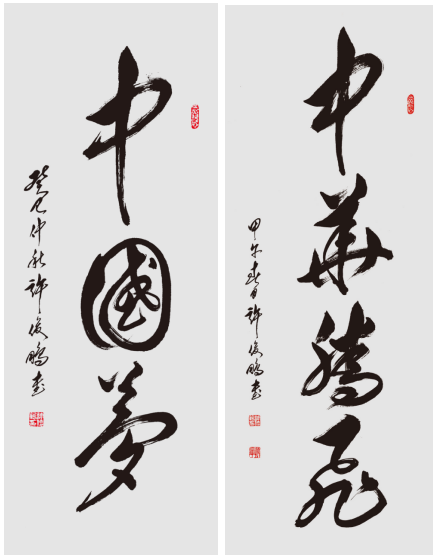 中國夢
癸巳仲秋許俊鵬書
中華騰飛
甲午春日許俊鵬書